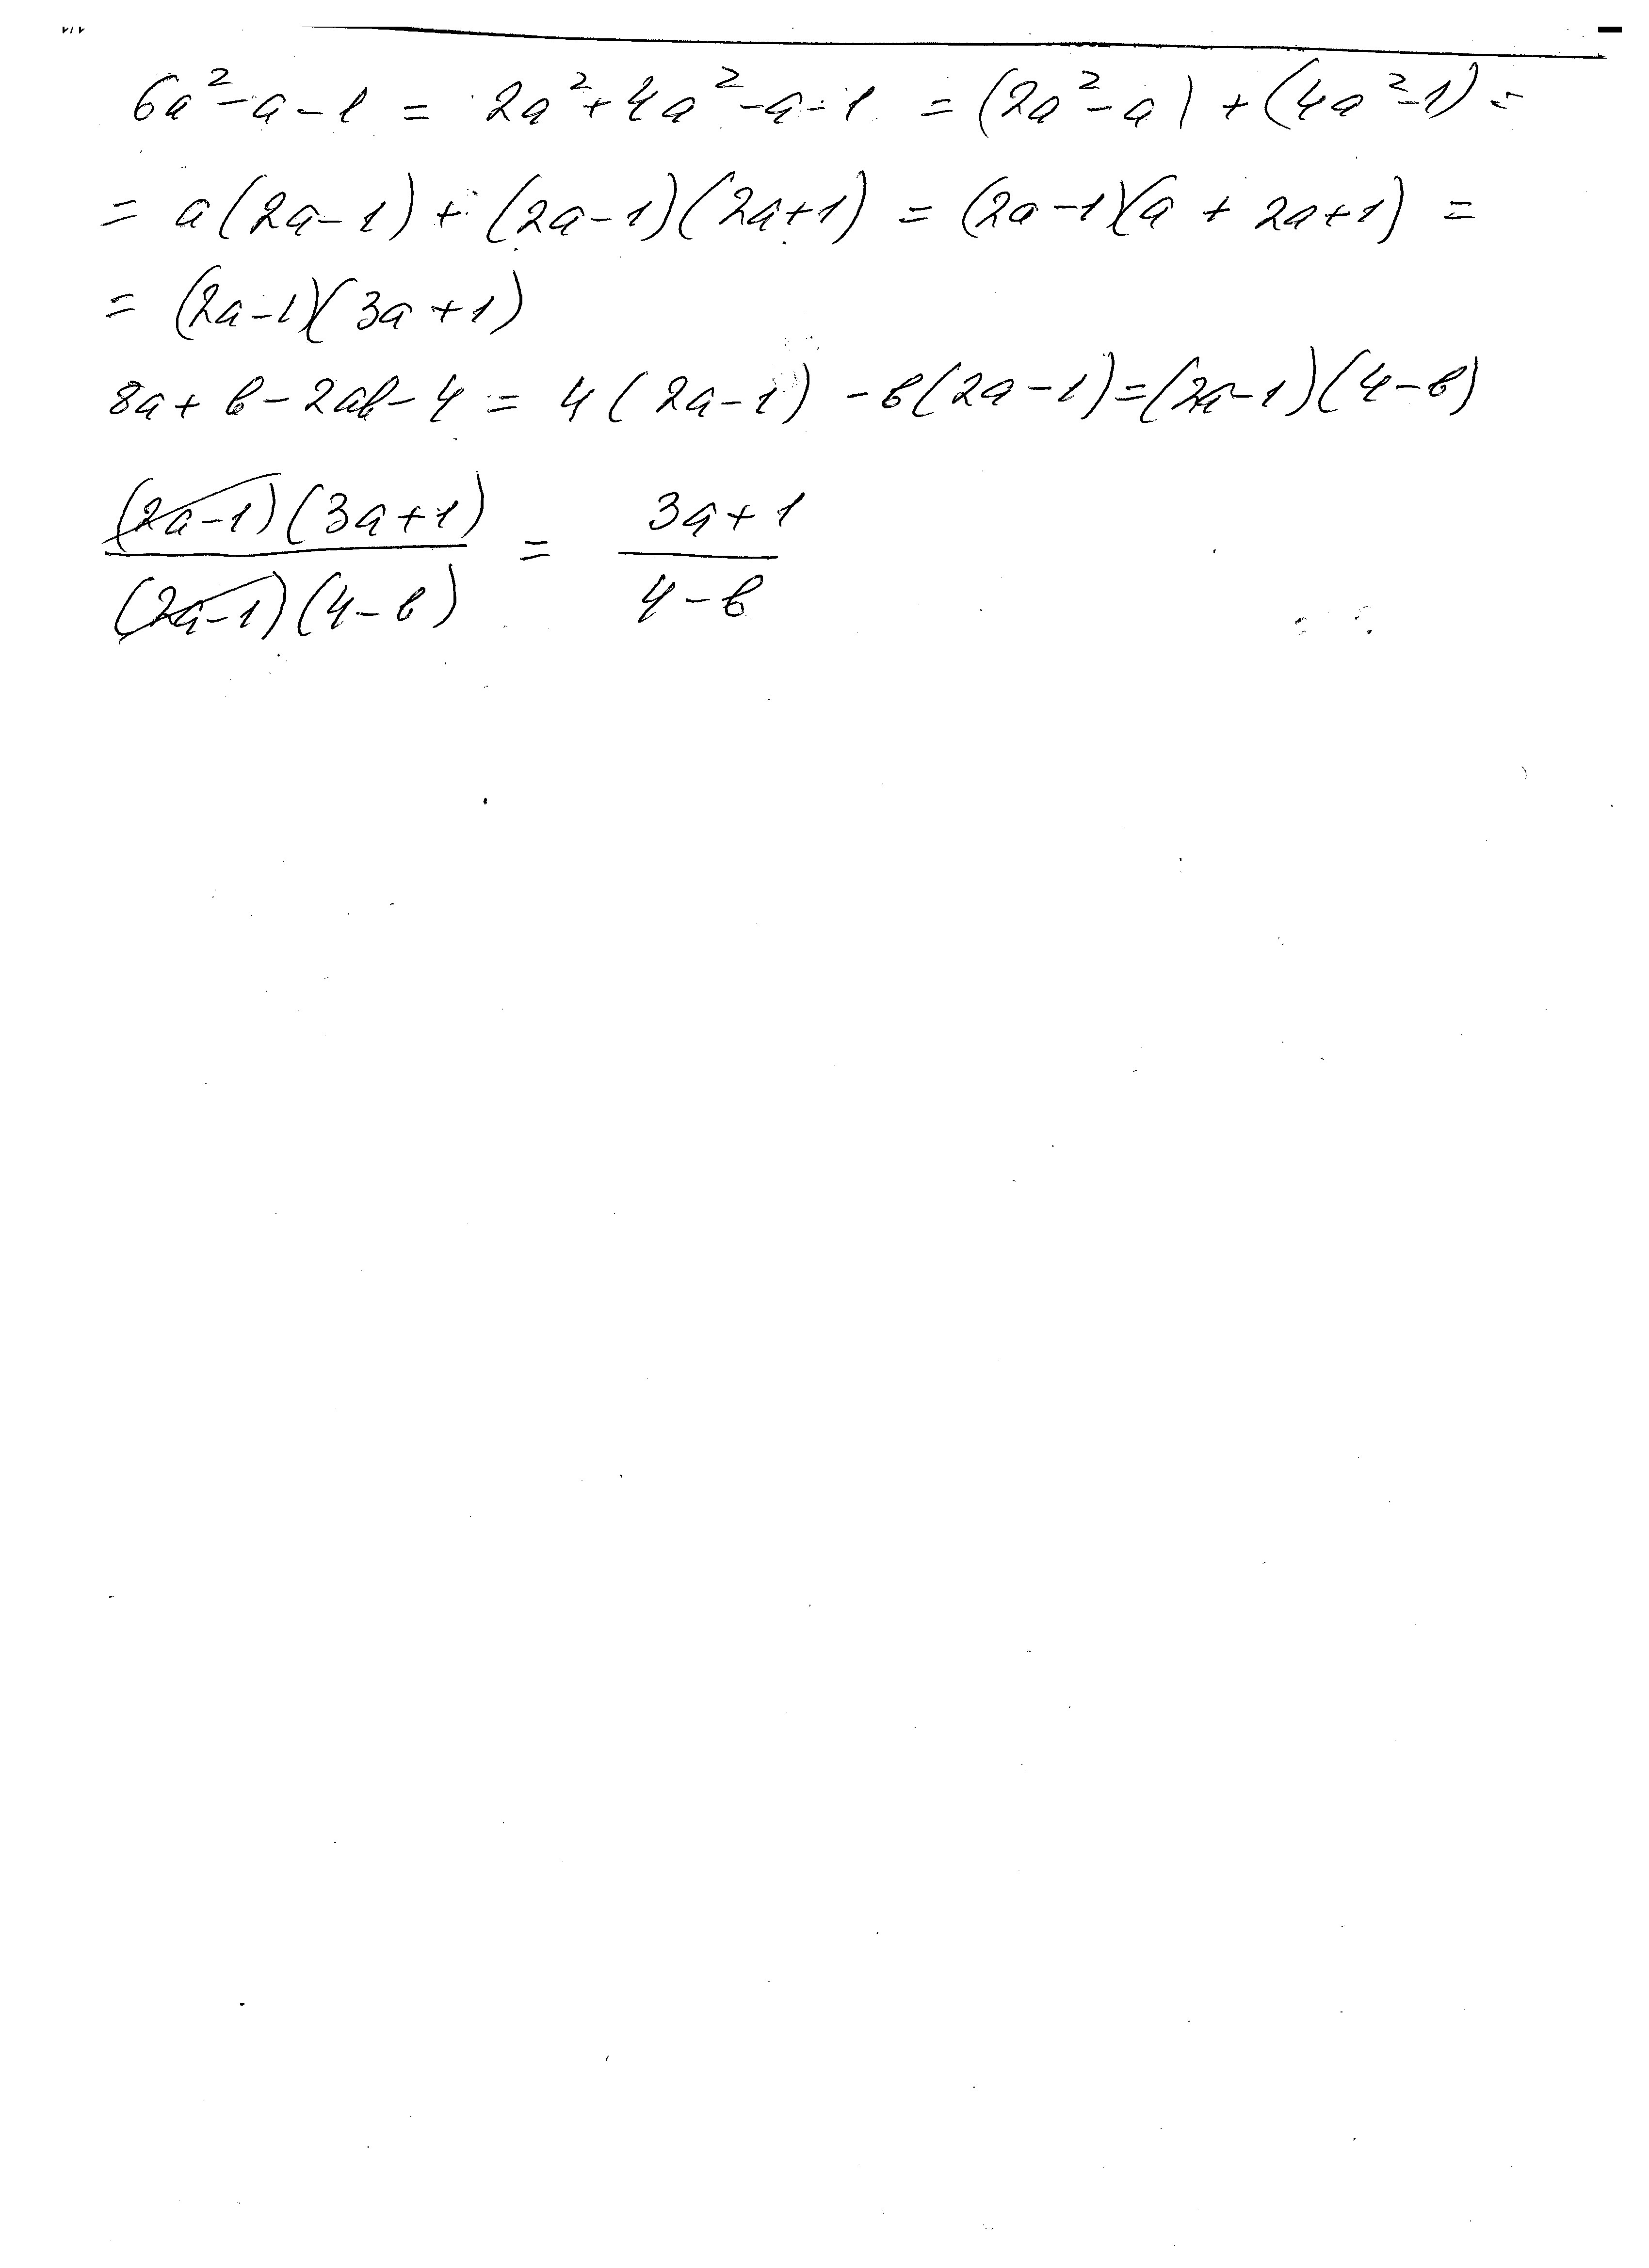 6a² - a - 1 = 2a² + 4a² - a - 1 = (2a² - a) + (4a² - 1) =
= a(2a - 1) + (2a - 1)(2a + 1) = (2a - 1)(a + 2a + 1) =
= (2a - 1)(3a + 1)
8a + b - 2ab - 4 = 4(2a - 1) - b(2a - 1) = (2a - 1)(4 - b)
(2a - 1)(3a + 1) / (2a - 1)(4 - b) = 3a + 1 / 4 - b